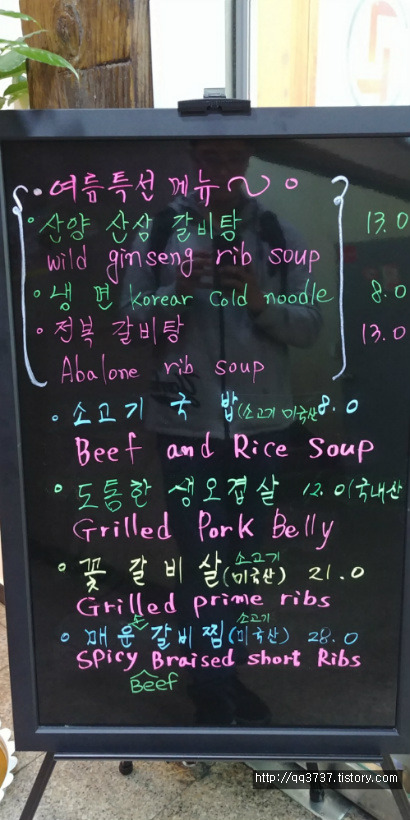 • 여름특선 메뉴 ~ o
• 산양 산삼 갈비탕 13.0
wild ginseng rib soup
• 냉 면 korear cold noodle 8.0
• 전복 갈비탕 13.0
Abalone rib soup
• 소고기 국 밥 (소고기 미국산 8.0
Beef and Rice Soup
• 도톰한 생오겹살 12.0 (국내산
Grilled Pork Belly
• 꽃 갈비살 소고기 (미국산) 21.0
Grilled prime ribs
• 매운 갈비찜 소고기 (미국산) 28.0
Spicy Braised short Ribs
Beef
http://qq3737.tistory.com